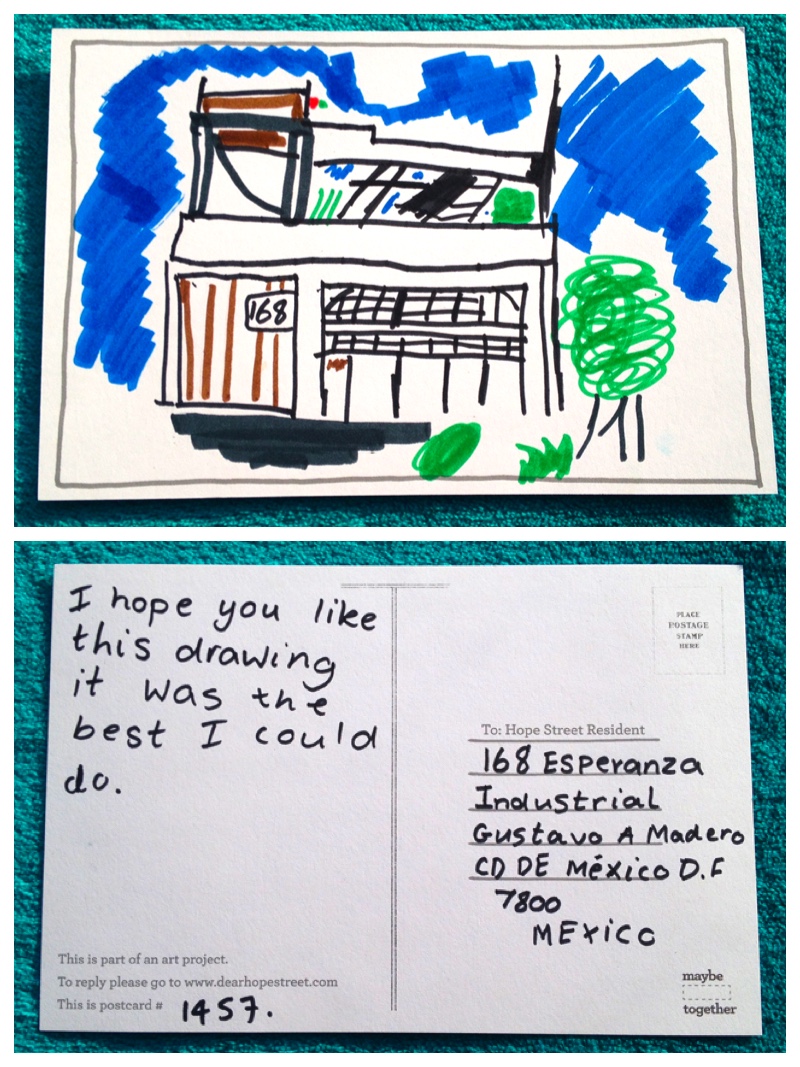 168
I hope you like
this drawing
it was the
best I could
do.
This is part of an art project.
To reply please go to www.dearhopestreet.com
This is postcard # 1457.
PLACE
POSTAGE
STAMP
HERE
To: Hope Street Resident
168 Esperanza
Industrial
Gustavo A Madero
CD DE México D.F
7800
MExico
maybe
together